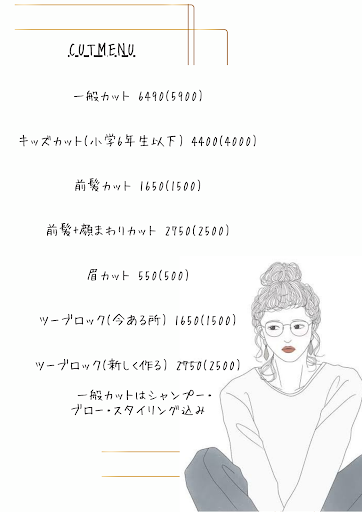 CUTMENU
一般カット 6490(5900)
キッズカット(小学6年生以下) 4400(4000)
前髪カット 1650(1500)
前髪+顔まわりカット 2750(2500)
眉カット 550(500)
ツーブロック(今ある所) 1650(1500)
ツーブロック(新しく作る) 2750(2500)
一般カットはシャンプー・
ブロー・スタイリング込み